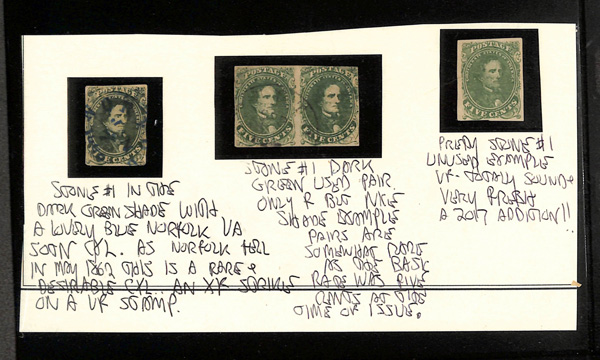 POSTAGE
FIVE CENTS
STONE #1 IN THE
DARK GREEN SHADE WITH
A LOVELY BLUE NORFOLK VA
SOTN CXL. AS NORFOLK FELL
IN MAY 1862 THIS IS A RARE &
DESIRABLE CXL.. AN XF STRIKE
ON A VF STAMP.
POSTAGE POSTAGE
FIVE CENTS FIVE CENTS
STONE #1 DARK
GREEN USED PAIR
ONLY F BUT NICE
SHADE EXAMPLE
PAIRS ARE
SOMEWHAT RARE
AS THE BASIC
RATE WAS FIVE
CENTS AT THE
TIME OF ISSUE.
POSTAGE
FIVE CENTS
PRETTY STONE #1
UNUSED EXAMPLE
VF - TOTALLY SOUND &
VERY FRESH
A 2017 ADDITION!!